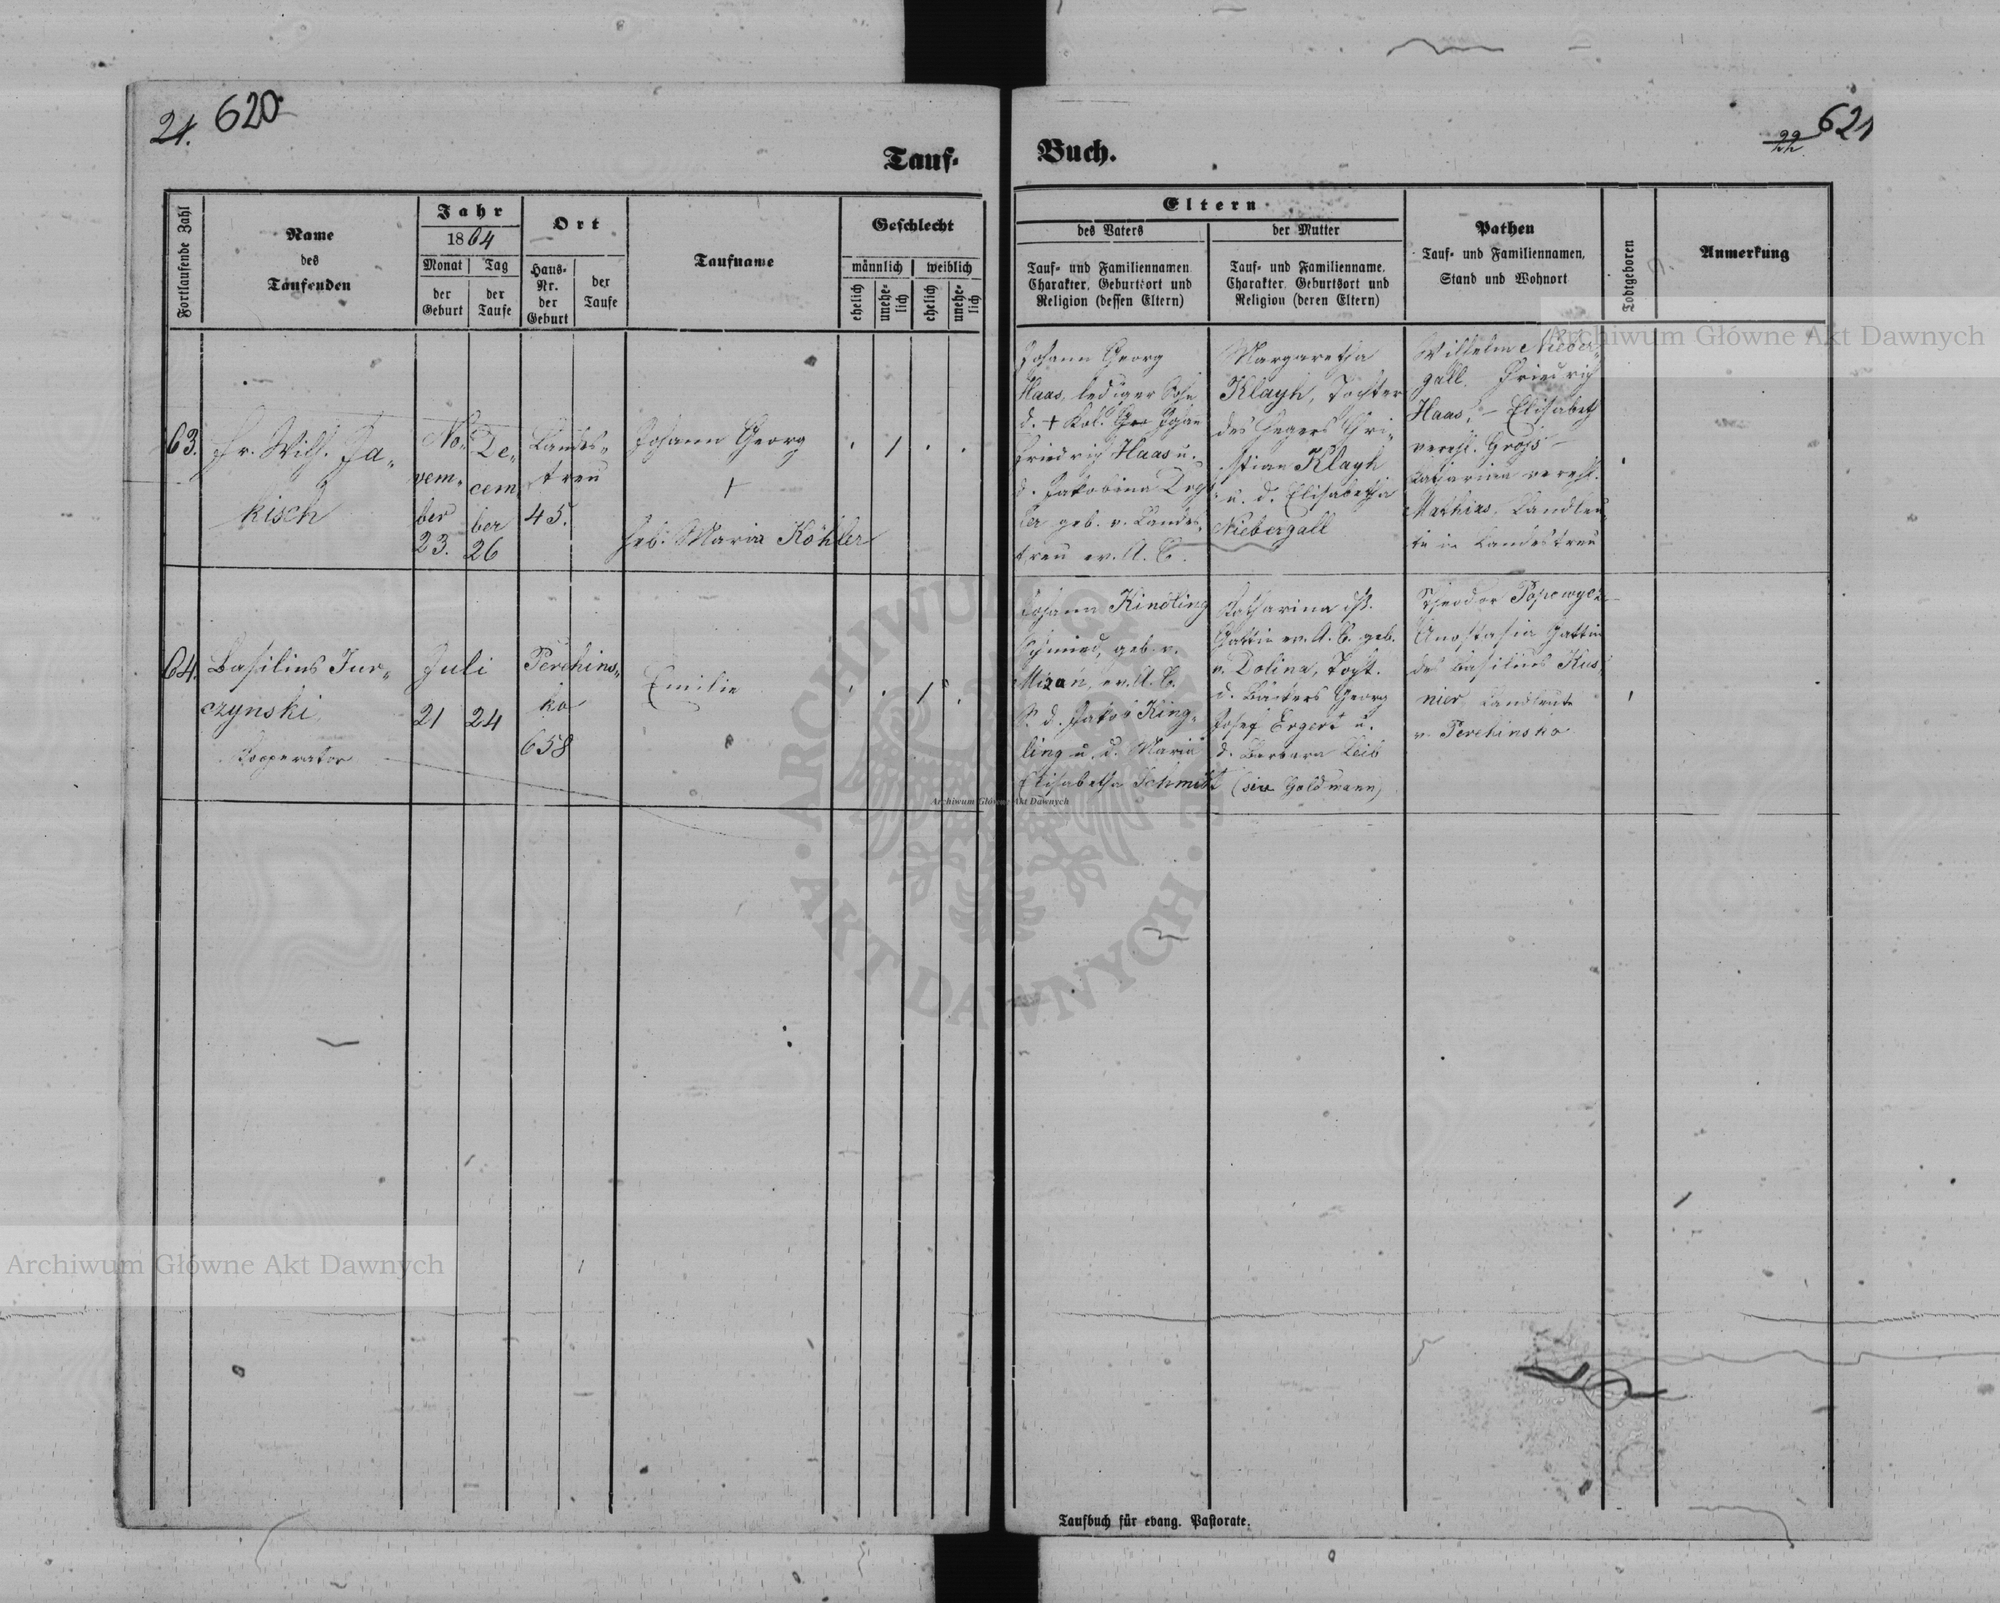 21.
620
621
Tauf-
Buch.
Fortlaufende Zahl
Name
des
Taufenden
Jahr
1864
Monat
der
Geburt
Tag
der
Taufe
Ort
Haus-
Nr.
der
Geburt
der
Taufe
Taufname
Geschlecht
männlich
weiblich
ehelich
unehe-
lich
ehelich
unehe-
lich
Eltern
des Vaters
Tauf- und Familiennamen.
Charakter, Geburtsort und
Religion (dessen Eltern)
der Mutter
Tauf- und Familienname,
Charakter, Geburtsort und
Religion (deren Eltern)
Pathen
Tauf- und Familiennamen,
Stand und Wohnort
Todtgeboren
Anmerkung
63.
Fr. Wilh. Ja-
kisch
No-
vem-
ber
23.
De-
cem
ber
26
Landes-
treu
45.
Johann Georg
+
Heb. Maria Köhler
Johann Georg
Haas, lediger Sohn
d. + Kol. Johan
Friedrich Haas u.
d. Jakobina
geb. v. Landes-
treu ev. A. C.
Margaretha
Klayh, Tochter
des Hegers Chri-
stian Klayh
u. d. Elisabetha
Niebergall
Wilhelm Nieber-
gall. Friedrich
Haas, - Elisabeth
verehl. Gross -
Catharina verehl.
Mathias, Landleu-
te in Landestreu
64.
Basilius Jur-
czynski
Cooperator
Juli
21
24
Perehins-
ko
658
Emilie
1
Johann Kindling
Schmied, geb. v.
Mizan, ev. A. C.
S. d. Jakob King-
ling u. d. Maria
Elisabetha Schmidt
Catharina
Gattin ev. A. C. geb.
v. Dolina, Tocht.
d. Bäckers Georg
Josef Ergert u.
d. Barbara Leib
(sive Goldmann)
Theodor
Anastasia Gattin
des Basilius Kus-
nier, Landleute
v. Perehinsko
Taufbuch für evang. Pastorate.
Archiwum Główne Akt Dawnych
Archiwum Główne Akt Dawnych
Archiwum Główne Akt Dawnych
ARCHIWUM GŁÓWNE · AKT DAWNYCH ·